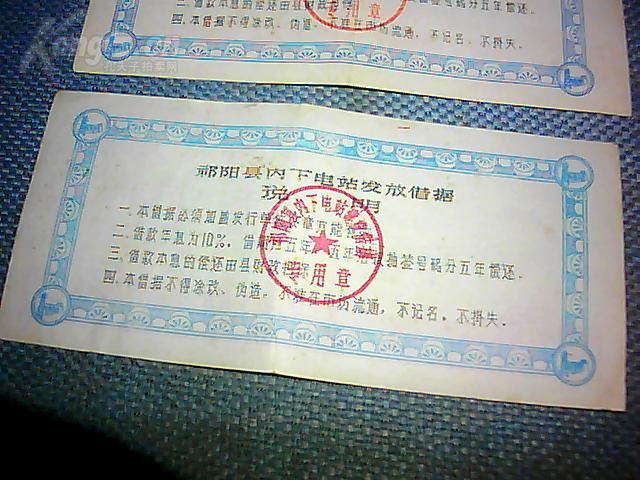 三. 借款本息的偿还由县财政担保
四. 本借据不得涂改、伪造,不准在市场流通,不记名、不掛失.
专用章
祁阳县内下电站发放借据
说 明
一. 本借据必须加盖发行单位
二. 借款年息为10%. 借期五年,五年后抽签号码分五年偿还.
三. 借款本息的偿还由县财政担保
四. 本借据不得涂改、伪造,不准在市场流通,不记名、不掛失.
祁阳县内下电站
专用章